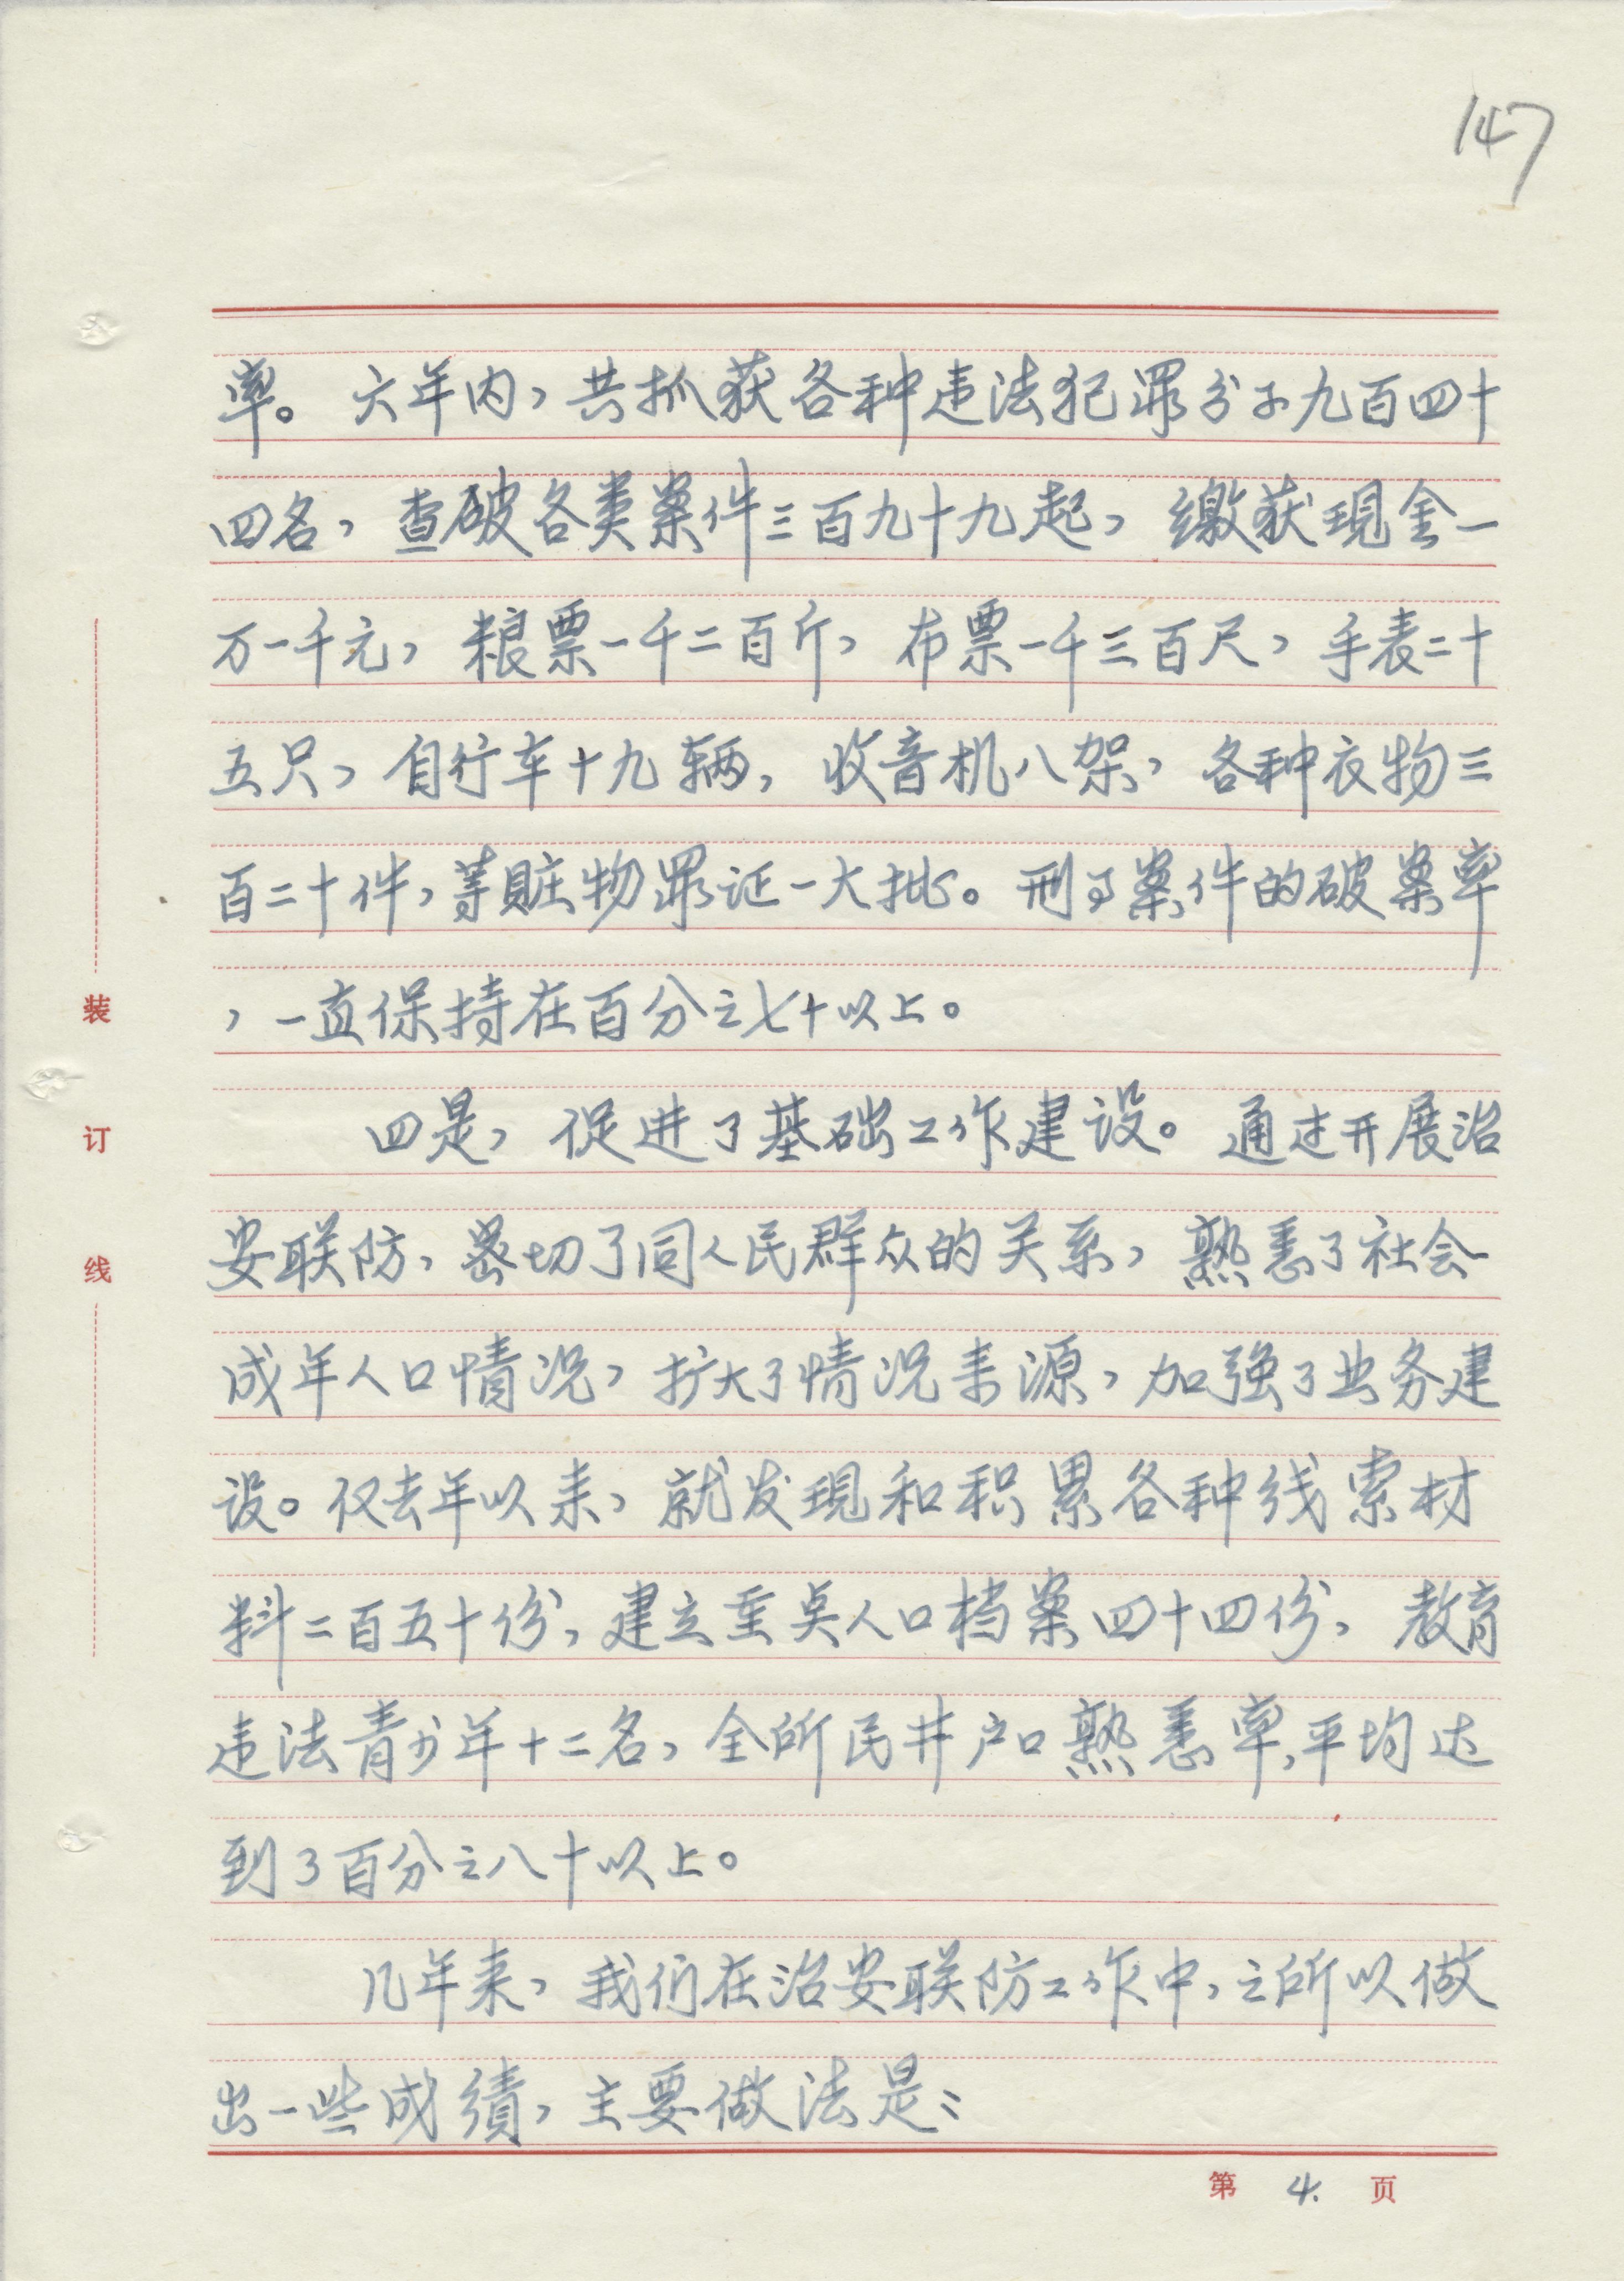 147
率。六年内，共抓获各种违法犯罪分子九百四十
四名，查破各类案件三百九十九起，缴获現金一
万一千元，粮票一千二百斤，布票一千三百尺，手表二十
五只，自行车十九辆，收音机八架，各种衣物三
百二十件，等賍物罪证一大批。刑事案件的破案率
，一直保持在百分之七十以上。
四是，促进了基础工作建设。通过开展治
安联防，密切了同人民群众的关系，熟悉了社会
成年人口情况，扩大了情况来源，加强了业务建
设。仅去年以来，就发現和积累各种线索材
料二百五十份，建立重点人口档案四十四份，教育
违法青少年十二名，全所民井户口熟悉率，平均达
到了百分之八十以上。
几年来，我们在治安联防工作中，之所以做
出一些成績，主要做法是：
第 4. 页
装
订
线